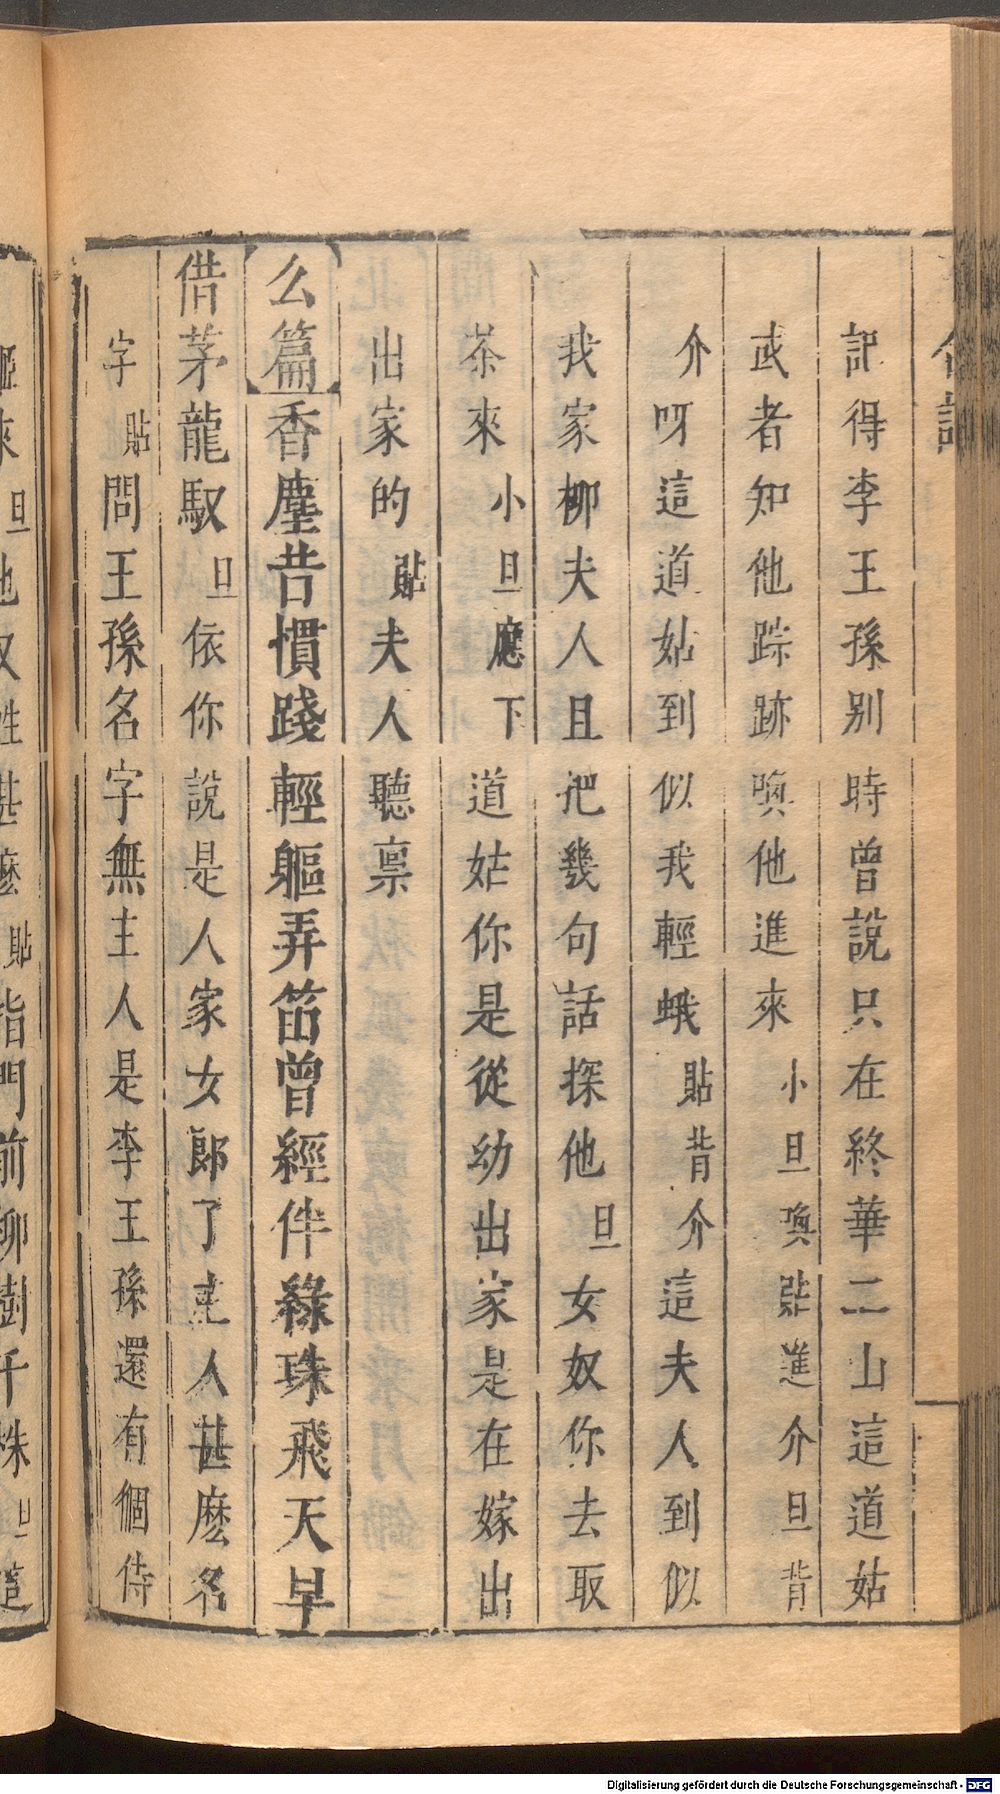 記得李王孫别時曾說只在終華二山這道姑
或者知他踪跡喚他進來小旦喚貼進介旦背
介呀這道姑到似我輕蛾貼背介這夫人到似
我家柳夫人且把幾句話探他旦女奴你去取
茶來小旦應下道姑你是從幼出家是在嫁出
出家的貼夫人聽禀
【么篇】香塵昔慣踐輕軀弄笛曾經伴綠珠飛天早
借茅龍馭旦依你說是人家女郎了主人甚麽名
字貼問王孫名字無主人是李王孫還有個侍
來旦他
姓甚麽貼指門前柳樹千株旦這
Digitalisierung gefördert durch die Deutsche Forschungsgemeinschaft - DFG